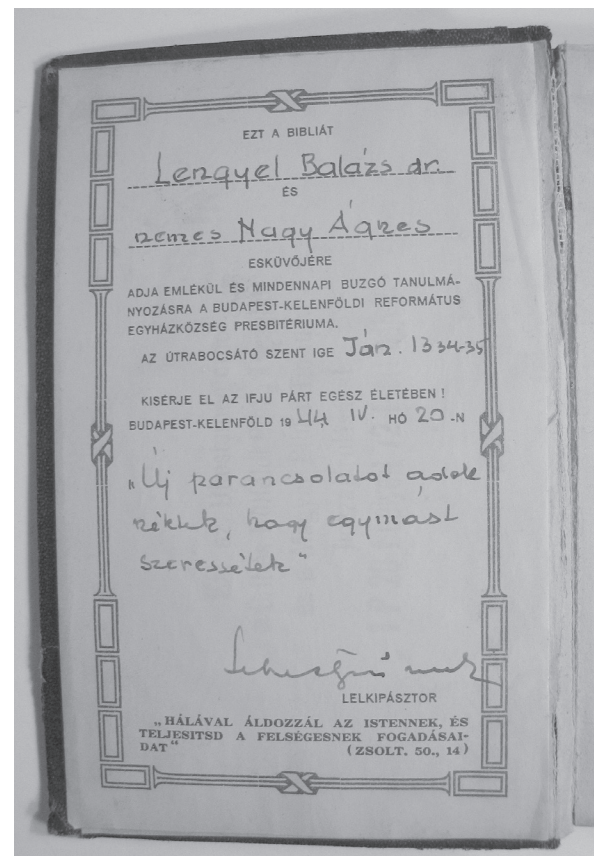 EZT A BIBLIÁT
Lengyel Balázs dr.
ÉS
nemes Nagy Ágnes
ESKÜVŐJÉRE
ADJA EMLÉKÜL ÉS MINDENNAPI BUZGÓ TANULMÁ-
NYOZÁSRA A BUDAPEST-KELENFÖLDI REFORMÁTUS
EGYHÁZKÖZSÉG PRESBITÉRIUMA.
AZ ÚTRABOCSÁTÓ SZENT IGE Ján. 13 34-35
KISÉRJE EL AZ IFJU PÁRT EGÉSZ ÉLETÉBEN!
BUDAPEST-KELENFÖLD 1944 IV. HÓ 20-N
„Új parancsolatot adok
néktek, hogy egymást
szeressétek"
LELKIPÁSZTOR
„HÁLÁVAL ÁLDOZZÁL AZ ISTENNEK, ÉS
TELJESITSD A FELSÉGESNEK FOGADÁSAI-
DAT" (ZSOLT. 50., 14)